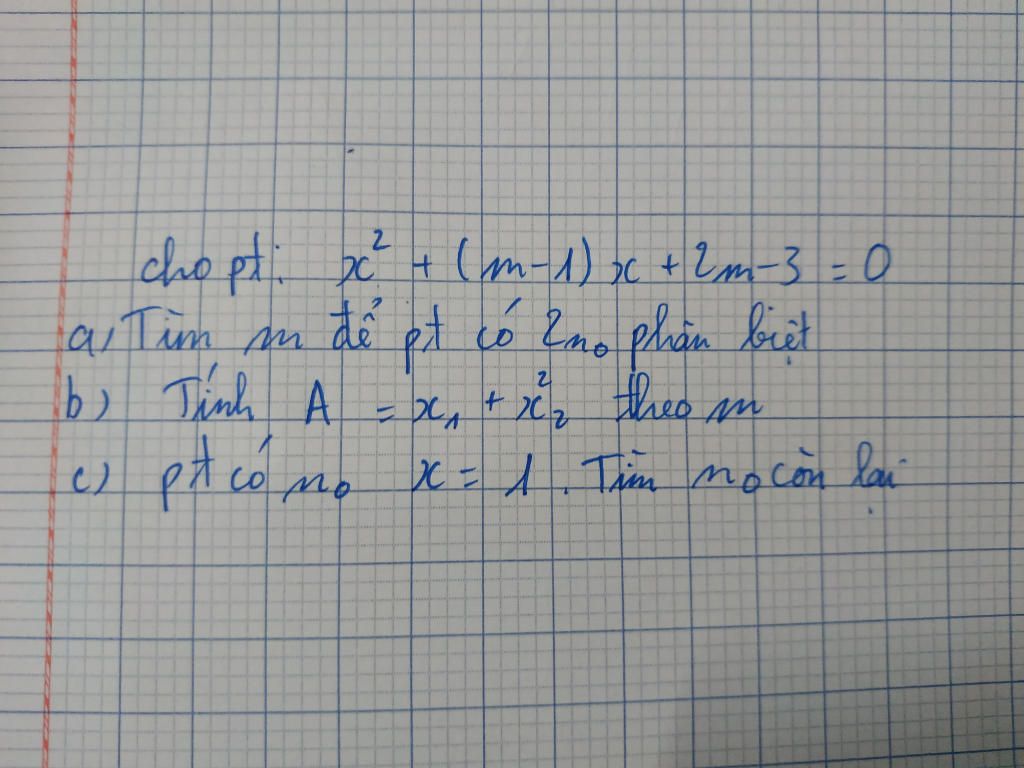 cho pt: x² + (m-1)x + 2m-3 = 0
a, Tìm m để pt có 2 n₀ phân biệt
b) Tính A = x₁ + x₂² theo m
c) pt có n₀ x = 1. Tìm n₀ còn lại